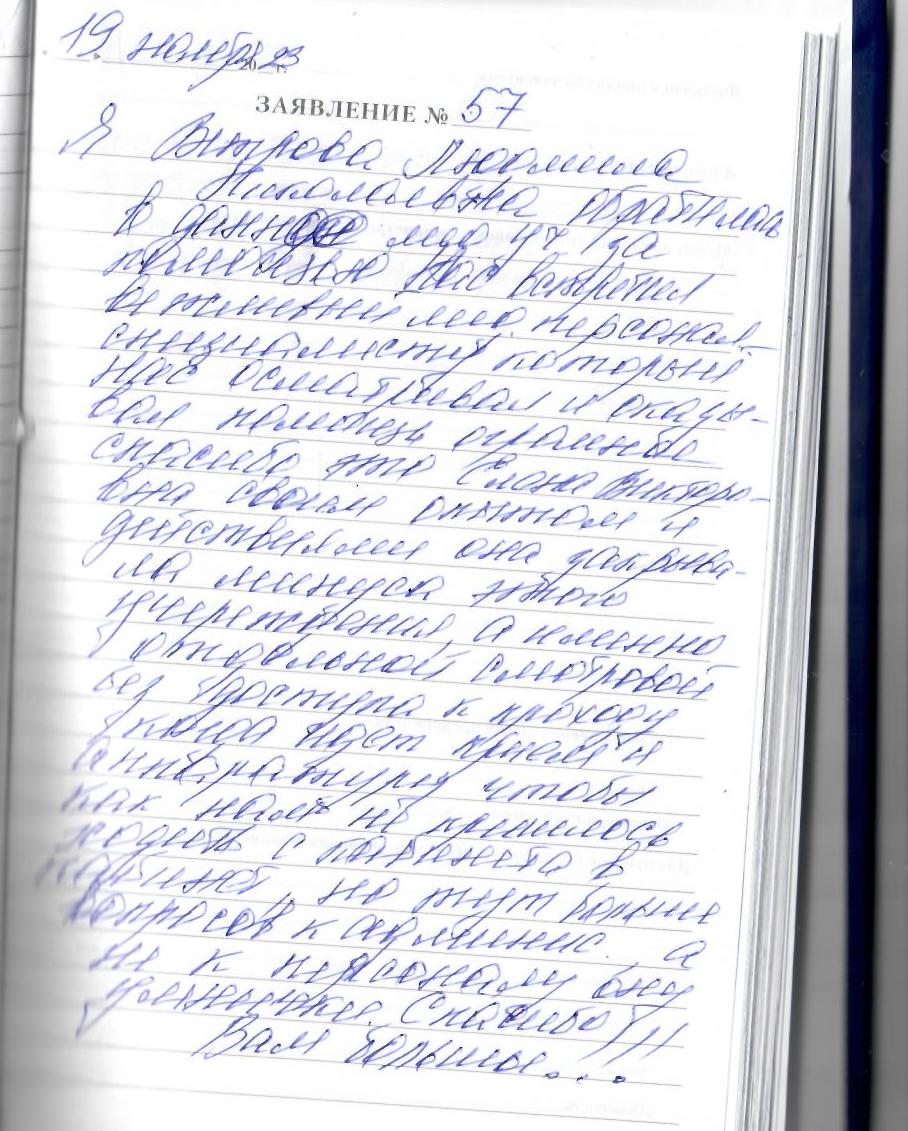 19 ноября 2023 г.
ЗАЯВЛЕНИЕ № 57
Я Ветрова Людмила
Николаевна обратилась
в данное мед уч за
помощью нас встретил
вежливый мед. персонал
специалисту который
нас осматривал и оказы-
вал помощь огромное
спасибо это Елена Викторо-
вна своим опытом и
действиями она закрыва-
ла минуса этого
учереждения, а именно
отдельной смотровой
без доступа к проходу
куда идет прием и
аппаратуры чтобы
как нам не пришлось
ходить с кабинета в
кабинет, но тут больше
вопросов к админис. а
не к персоналу они
умнички. Спасибо!!!
Вам большое...